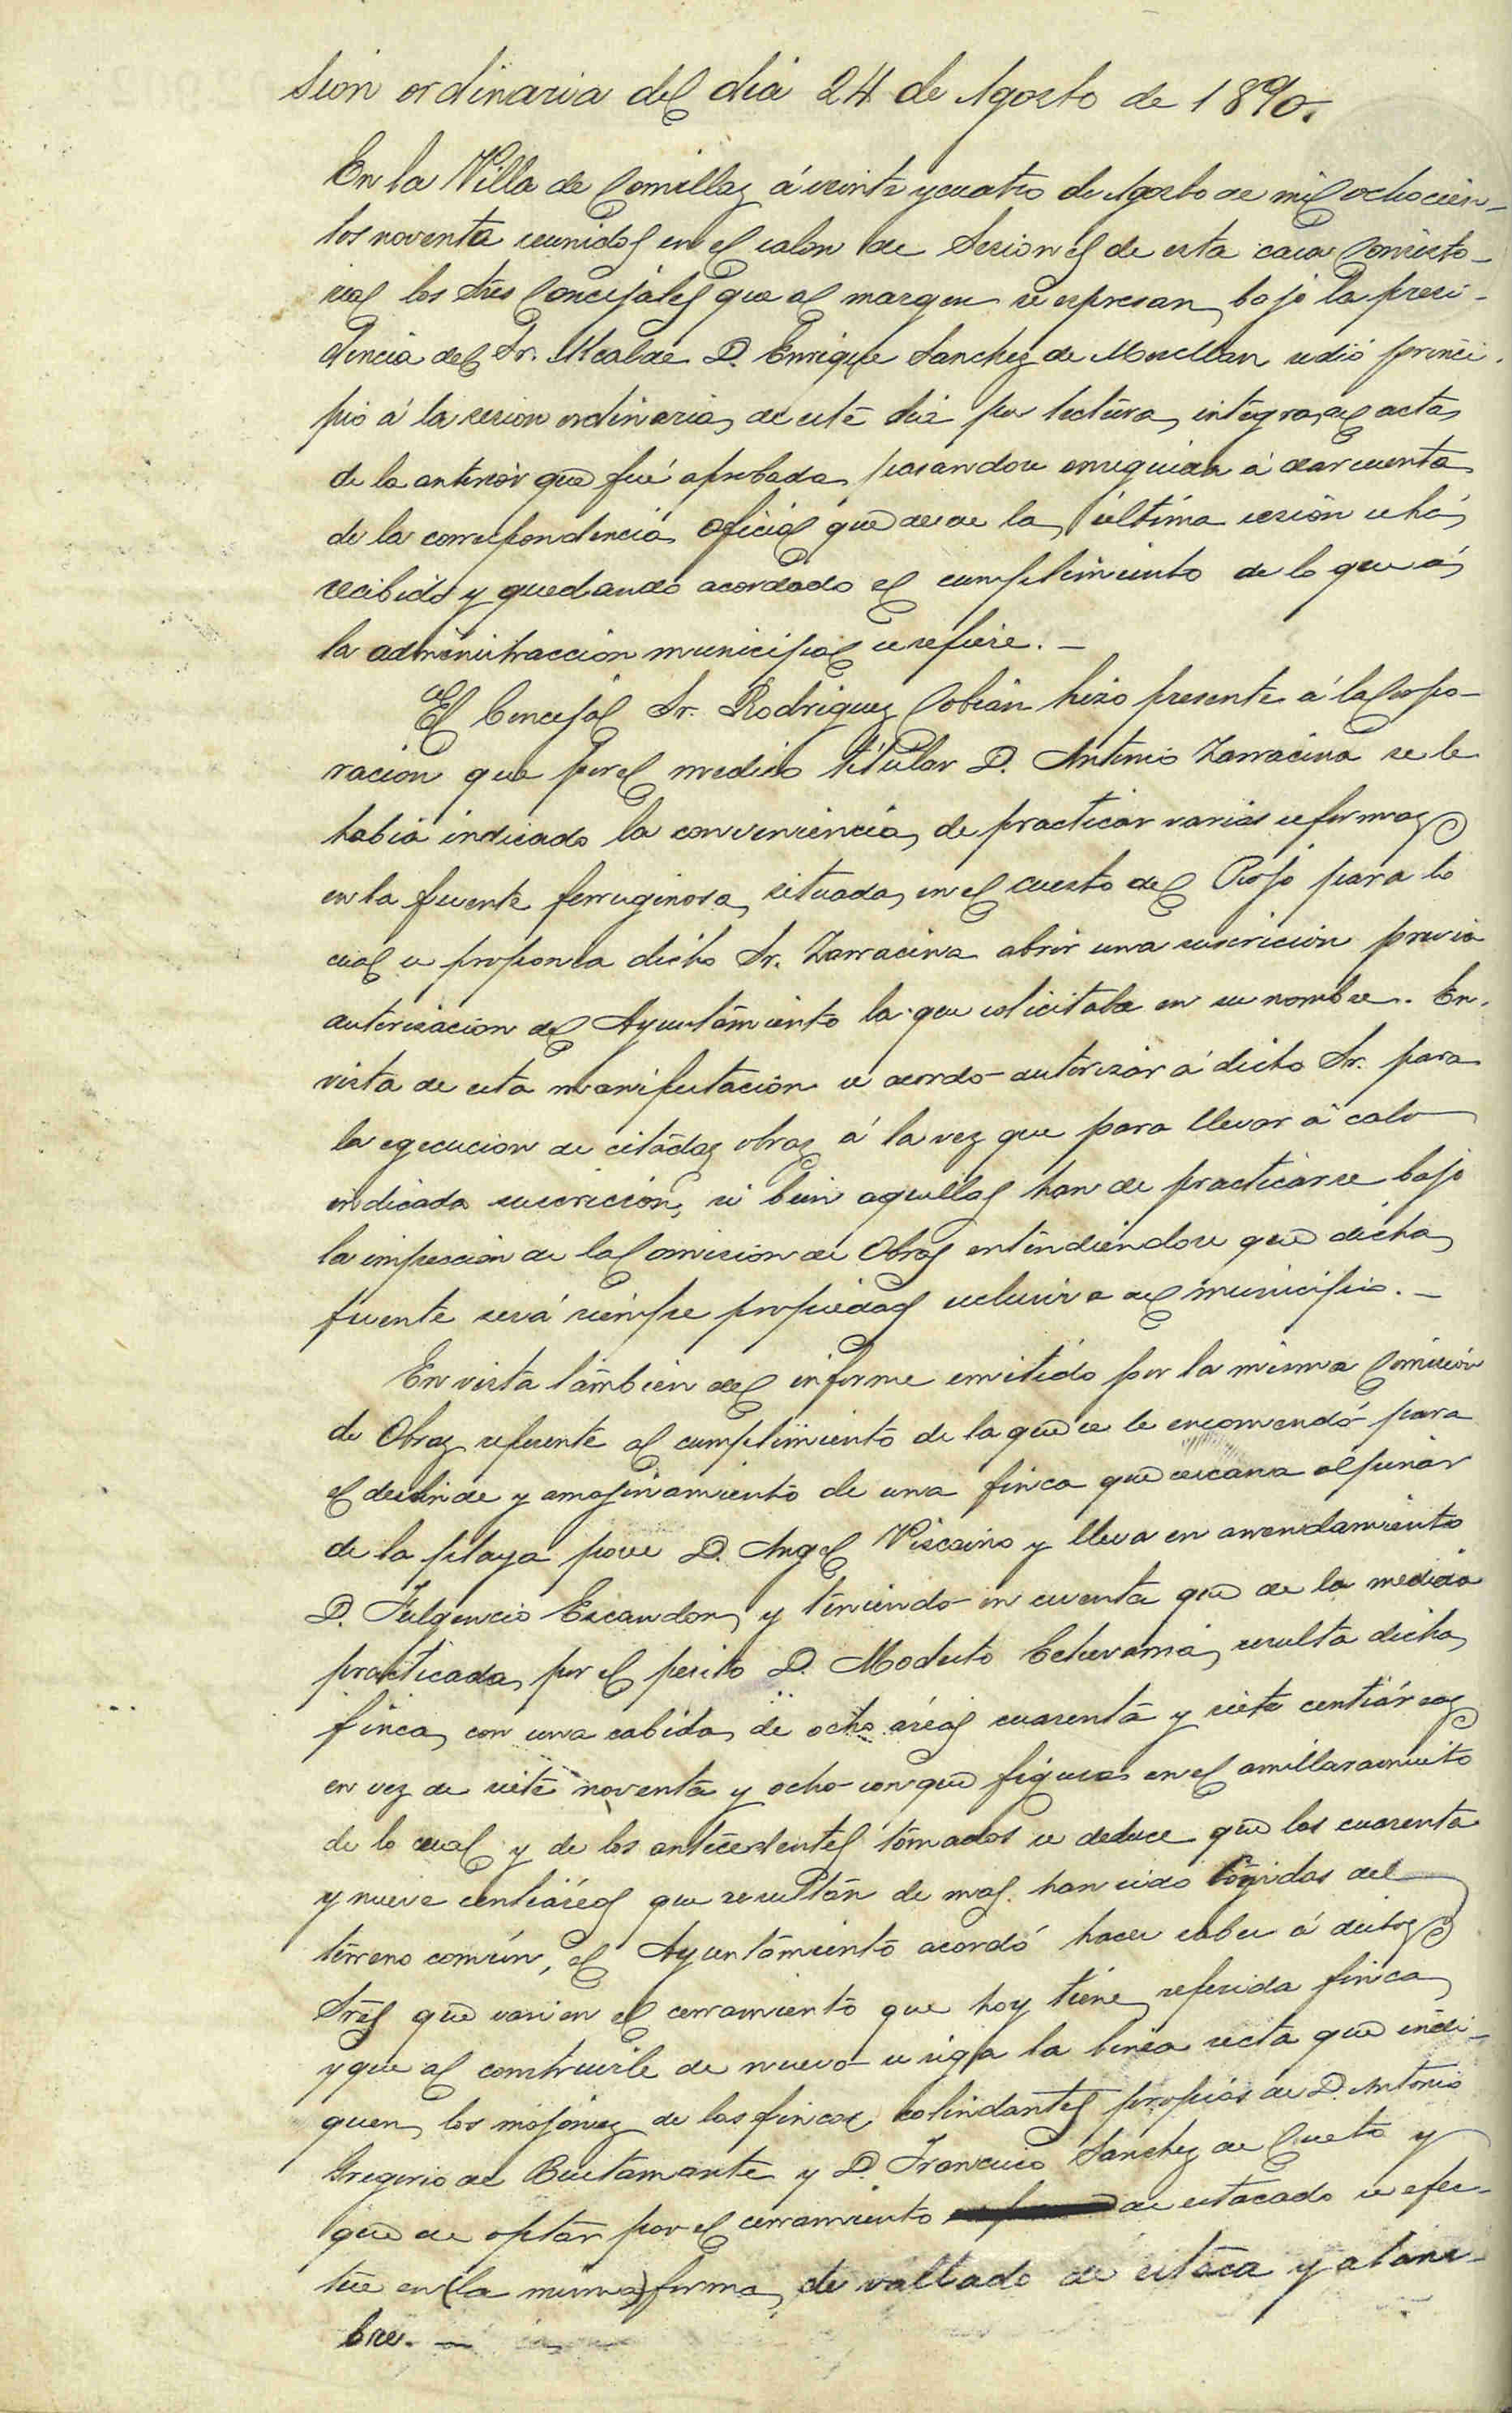 Sion ordinaria del dia 24 de Agosto de 1890.
En la Villa de Comillas á veinte y cuatro de Agosto de mil ochocien-
tos noventa reunidos en el salon de Sesiones de esta casa Consisto-
rial los Sres Concejales que al margen se espresan, bajo la presi-
dencia del Sr. Alcalde D. Enrique Sanchez de Movellan se dió princi-
pio á la sesion ordinaria de este dia por lectura integra del acta
de la anterior que fué aprobada, pasandose enseguida á dar cuenta
de la correspondencia oficial que desde la última sesión se há
recibido y quedando acordado el cumplimiento de lo que á
la administraccion municipal se refiere. —
El Concejal Sr. Rodriguez Cobian hizo presente á la Corpo-
racion que por el medico titular D. Antonio Zarracina se le
habia indicado la conveniencia de practicar varias reformas
en la fuente ferruginosa, situada en el cuesto del Piojo para lo
cual se proponia dicho Sr. Zarracina abrir una suscricion previa
autorizacion del Ayuntamiento la que solicitaba en su nombre. En
vista de esta manifestacion se acordo autorizar á dicho Sr. para
la egecucion de citadas obras á la vez que para llevar á cabo
indicada suscricion, si bien aquellas han de practicarse bajo
la inspeccion de la Comision de Obras entendiendose que dicha
fuente será siempre propiedad esclusiva del municipio. —
En vista tambien del informe emitido por la misma Comision
de Obras referente al cumplimiento de la que se le encomendó para
el deslinde y amojonamiento de una finca que cercana al pinar
de la playa posee D. Angel Viscaino y lleva en arrendamiento
D. Fulgencio Escandon, y teniendo en cuenta que de la medida
practicada por el perito D. Modesto Echevarria, resulta dicha
finca, con una cabida de ocho áreas cuarenta y siete centiáreas
en vez de siete noventa y ocho con que figura en el amillaramiento
de lo cual y de los antecedentes tomados se deduce que las cuarenta
y nueve centiáreas que resultan de mas. han sido cogidas del
terreno comun, el Ayuntamiento acordó hacer saber á dichos
Sres que varien el cerramiento que hoy tiene referida finca
y que al construirle de nuevo se siga la linea recta que indi-
quen los mojones de las fincas colindantes propias de D. Antonio
Gregorio de Bustamante y D. Francisco Sanchez de Cueto y
que de optar por el cerramiento de estacado se efec-
tue en (la misma) forma, de vallado de estaca y alam-
bre. —